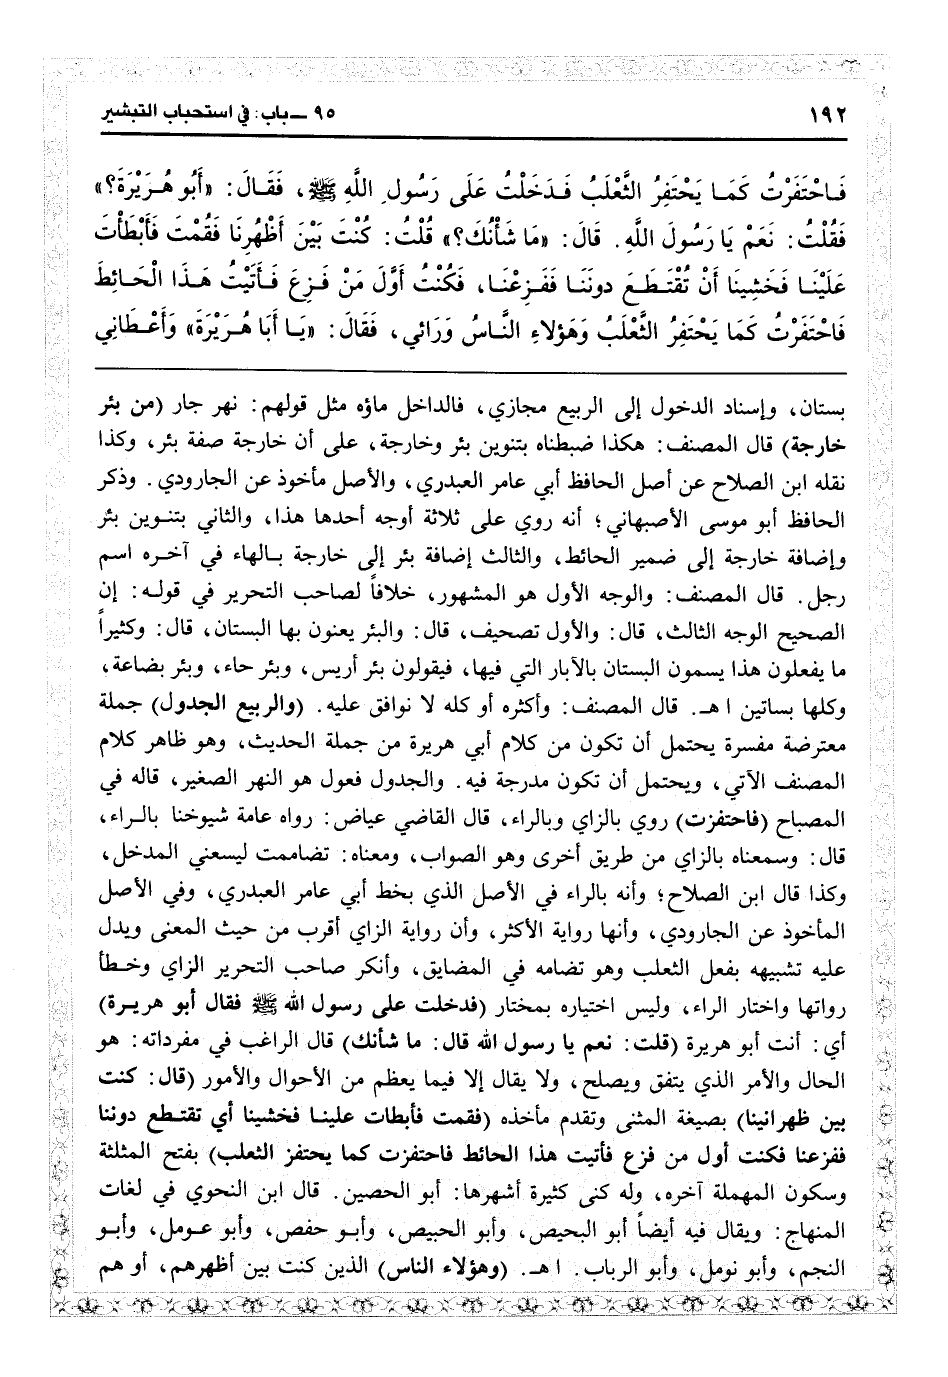 ١٩٢
٩٥ ــ باب: في استحباب التبشير
فَـاحْتَفَزْتُ كَمَـا يَحْتَفِزُ الثَّعْلَبُ فَـدَخَلْتُ عَلَى رَسُولِ اللَّهِ ﷺ، فَقَـالَ: «أَبُو هُـرَيْرَةَ؟»
فَقُلْتُ: نَعَمْ يَا رَسُولَ اللَّهِ. قَالَ: «مَا شَأْنُكَ؟» قُلْتُ: كُنْتَ بَيْنَ أَظْهُرِنَا فَقُمْتَ فَأَبْطَأْتَ
عَلَيْنَـا فَخَشِينَا أَنْ تُقْتَـطَـعَ دونَنَـا فَفَـزِعْنَـا، فَكُنْتُ أَوَّلَ مَنْ فَـزِعَ فَـأَتَيْتُ هَـذَا الْحَـائِطَ
فَاحْتَفَزْتُ كَمَا يَحْتَفِزُ الثَّعْلَبُ وَهَؤلاءِ النَّـاسُ وَرَائي، فَقَالَ: «يَـا أَبَا هُـرَيْرَةَ» وَأَعْـطَانِي
بستان، وإسناد الدخول إلى الربيع مجازي، فالداخل ماؤه مثل قولهم: نهر جار (من بئر
خارجة) قال المصنف: هكذا ضبطناه بتنوين بئر وخارجة، على أن خارجة صفة بئر، وكذا
نقله ابن الصلاح عن أصل الحافظ أبي عامر العبدري، والأصل مأخوذ عن الجارودي. وذكر
الحافظ أبو موسى الأصبهاني؛ أنه روي على ثلاثة أوجه أحدها هذا، والثاني بتنـوين بئر
وإضافة خارجة إلى ضمير الحائط، والثالث إضافة بئر إلى خارجة بـالهاء في آخـره اسم
رجل. قال المصنف: والوجه الأول هو المشهور، خلافاً لصاحب التحرير في قولـه: إن
الصحيح الوجه الثالث، قال: والأول تصحيف، قال: والبئر يعنون بها البستان، قال: وكثيراً
ما يفعلون هذا يسمون البستان بالآبار التي فيها، فيقولون بئر أريس، وبئر حاء، وبئر بضاعة،
وكلها بساتين ا هـ. قال المصنف: وأكثره أو كله لا نوافق عليه. (والربيع الجدول) جملة
معترضة مفسرة يحتمل أن تكون من كلام أبي هريرة من جملة الحديث، وهو ظاهر كلام
المصنف الآتي، ويحتمل أن تكون مدرجة فيه. والجدول فعول هو النهر الصغير، قاله في
المصباح (فاحتفزت) روي بالزاي وبالراء، قال القاضي عياض: رواه عامة شيوخنا بالـراء،
قال: وسمعناه بالزاي من طريق أخرى وهو الصواب، ومعناه: تضاممت ليسعني المدخل،
وكذا قال ابن الصلاح؛ وأنه بالراء في الأصل الذي بخط أبي عامر العبدري، وفي الأصل
المأخوذ عن الجارودي، وأنها رواية الأكثر، وأن رواية الزاي أقرب من حيث المعنى ويدل
عليه تشبيهه بفعل الثعلب وهو تضامه في المضايق، وأنكر صاحب التحرير الزاي وخـطأ
رواتها واختار الراء، وليس اختياره بمختار (فدخلت على رسول الله ﷺ فقال أبو هريـرة)
أي: أنت أبو هريرة (قلت: نعم يا رسول الله قال: ما شأنك) قال الراغب في مفرداته: هو
الحال والأمر الذي يتفق ويصلح، ولا يقال إلا فيما يعظم من الأحوال والأمور (قال: كنت
بين ظهرانينا) بصيغة المثنى وتقدم مأخذه (فقمت فأبطات علينـا فخشينا أي تقتـطع دوننا
ففزعنا فكنت أول من فزع فأتيت هذا الحائط فاحتفزت كما يحتفز الثعلب) بفتح المثلثة
وسكون المهملة آخره، وله كنى كثيرة أشهرها: أبو الحصين. قال ابن النحوي في لغات
المنهاج: ويقال فيه أيضاً أبو البحيص، وأبو الحبيص، وأبـو حفص، وأبو عـومل، وأبـو
النجم، وأبو نومل، وأبو الرباب. ا هـ. (وهؤلاء الناس) الذين كنت بين أظهرهم، أو هم